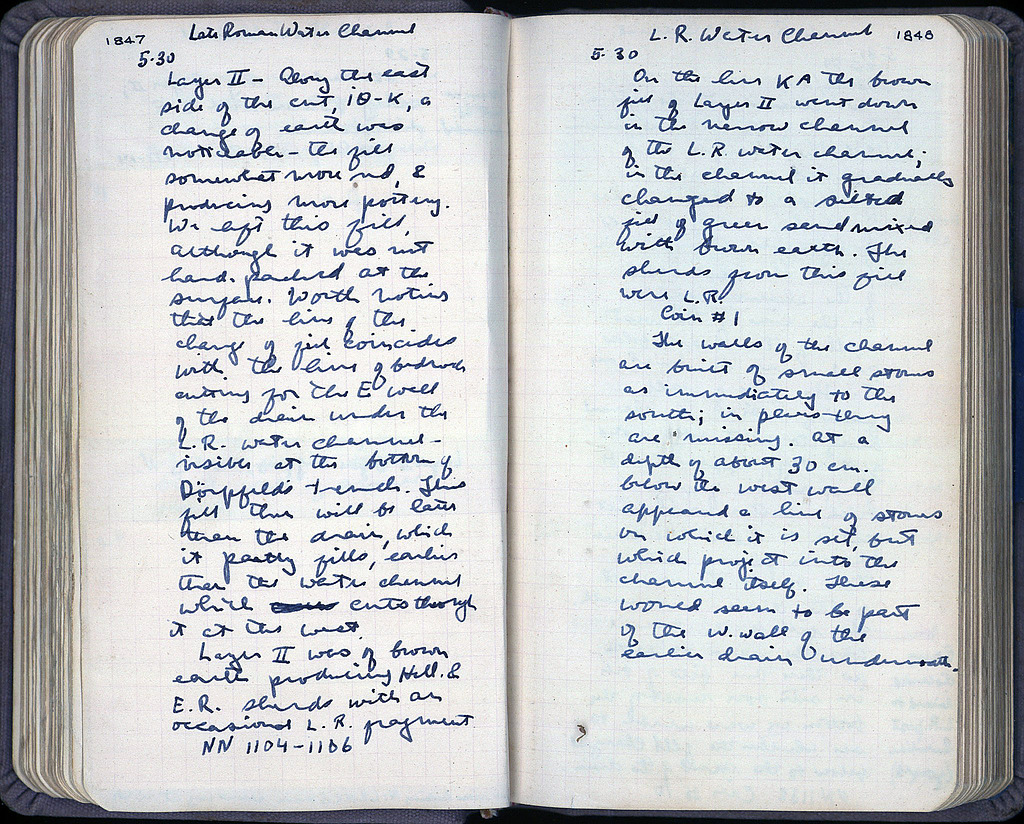 1847 Late Roman Water Channel
5-30
Layer II - Along the east
side of the cut, 10-K, a
change of earth was
noticeable - the fill
somewhat more red, &
producing more pottery.
We left this fill,
although it was not
hard-packed at the
surface. Worth noting
that the line of this
change of fill coincides
with the line of bedrock
cutting for the E wall
of the drain under the
L.R. water channel -
visible at the bottom of
Dörpfeld's trench. This
fill thus will be later
than the drain, which
it partly fills, earlier
than the water channel
which cuts through
it at the west.
Layer II was of brown
earth producing Hell. &
E.R. sherds with an
occasional L.R. fragment
NN 1104-1106
L. R. Water Channel 1848
5-30
On the line KA the brown
fill of Layer II went down
in the narrow channel
of the L.R. water channel;
in the channel it gradually
changed to a silted
fill of green sand mixed
with brown earth. The
sherds from this fill
were L.R.
Coin #1
The walls of the channel
are built of small stones
as immediately to the
south; in places they
are missing. At a
depth of about 30 cm.
below the west wall
appeared a line of stones
on which it is set, but
which project into the
channel itself. These
would seem to be part
of the W. wall of the
earlier drain underneath.